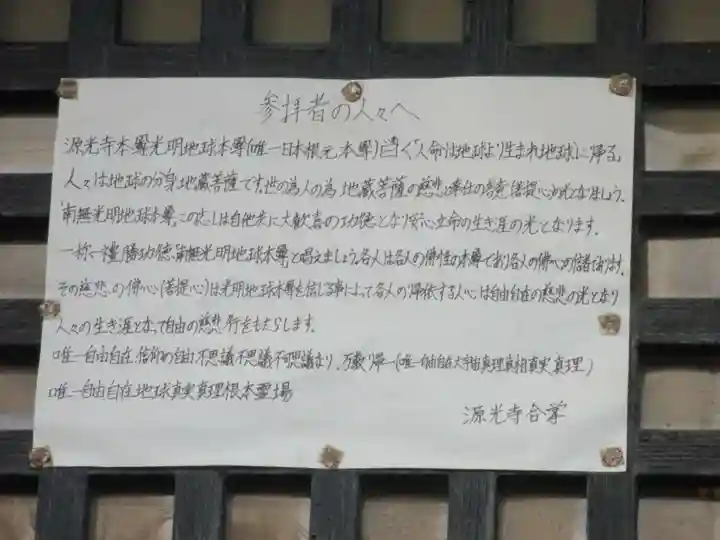 参拝者の人々へ
源光寺本尊光明地球本尊(唯一日本根元本尊)曰く"人命は地球より生まれ地球に帰る。
人々は地球の分身地蔵菩薩です。世の為人の為地蔵菩薩の慈悲と奉仕の善意(菩提心)の光となりましょう。
「南無光明地球本尊」この志しは自他共に大歓喜の功徳となり安心立命の生き涯の光となります。
一称一禮勝功徳「南無光明地球本尊」と唱えましょう。各人は各人の佛性の本尊であり各人の佛心の信者であります。
その慈悲の佛心(菩提心)は光明地球本尊を信じる事によって各人の帰依する人心は自由自在の慈悲の光となり
人々の生き涯となって自由の慈悲行をもたらします。
唯一自由自在信仰の自由不思議不思議不可思議なり、万教帰一(唯一自由自在大宇宙真理真相真実真理)
唯一自由自在地球真実真理根本霊場
源光寺合掌